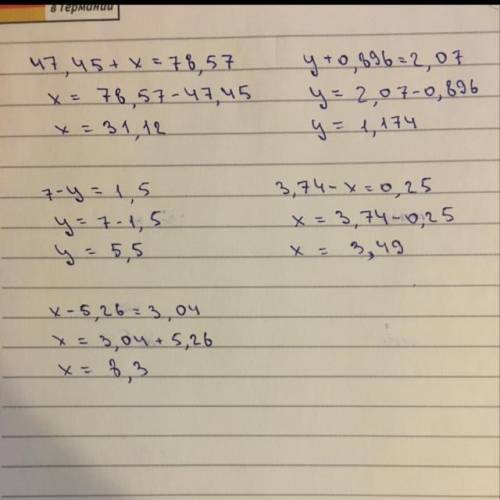 в Германии
47,45 + x = 78,57
x = 78,57 - 47,45
x = 31,12
y + 0,896 = 2,07
y = 2,07 - 0,896
y = 1,174
7 - y = 1,5
y = 7 - 1,5
y = 5,5
3,74 - x = 0,25
x = 3,74 - 0,25
x = 3,49
x - 5,26 = 3,04
x = 3,04 + 5,26
x = 8,3